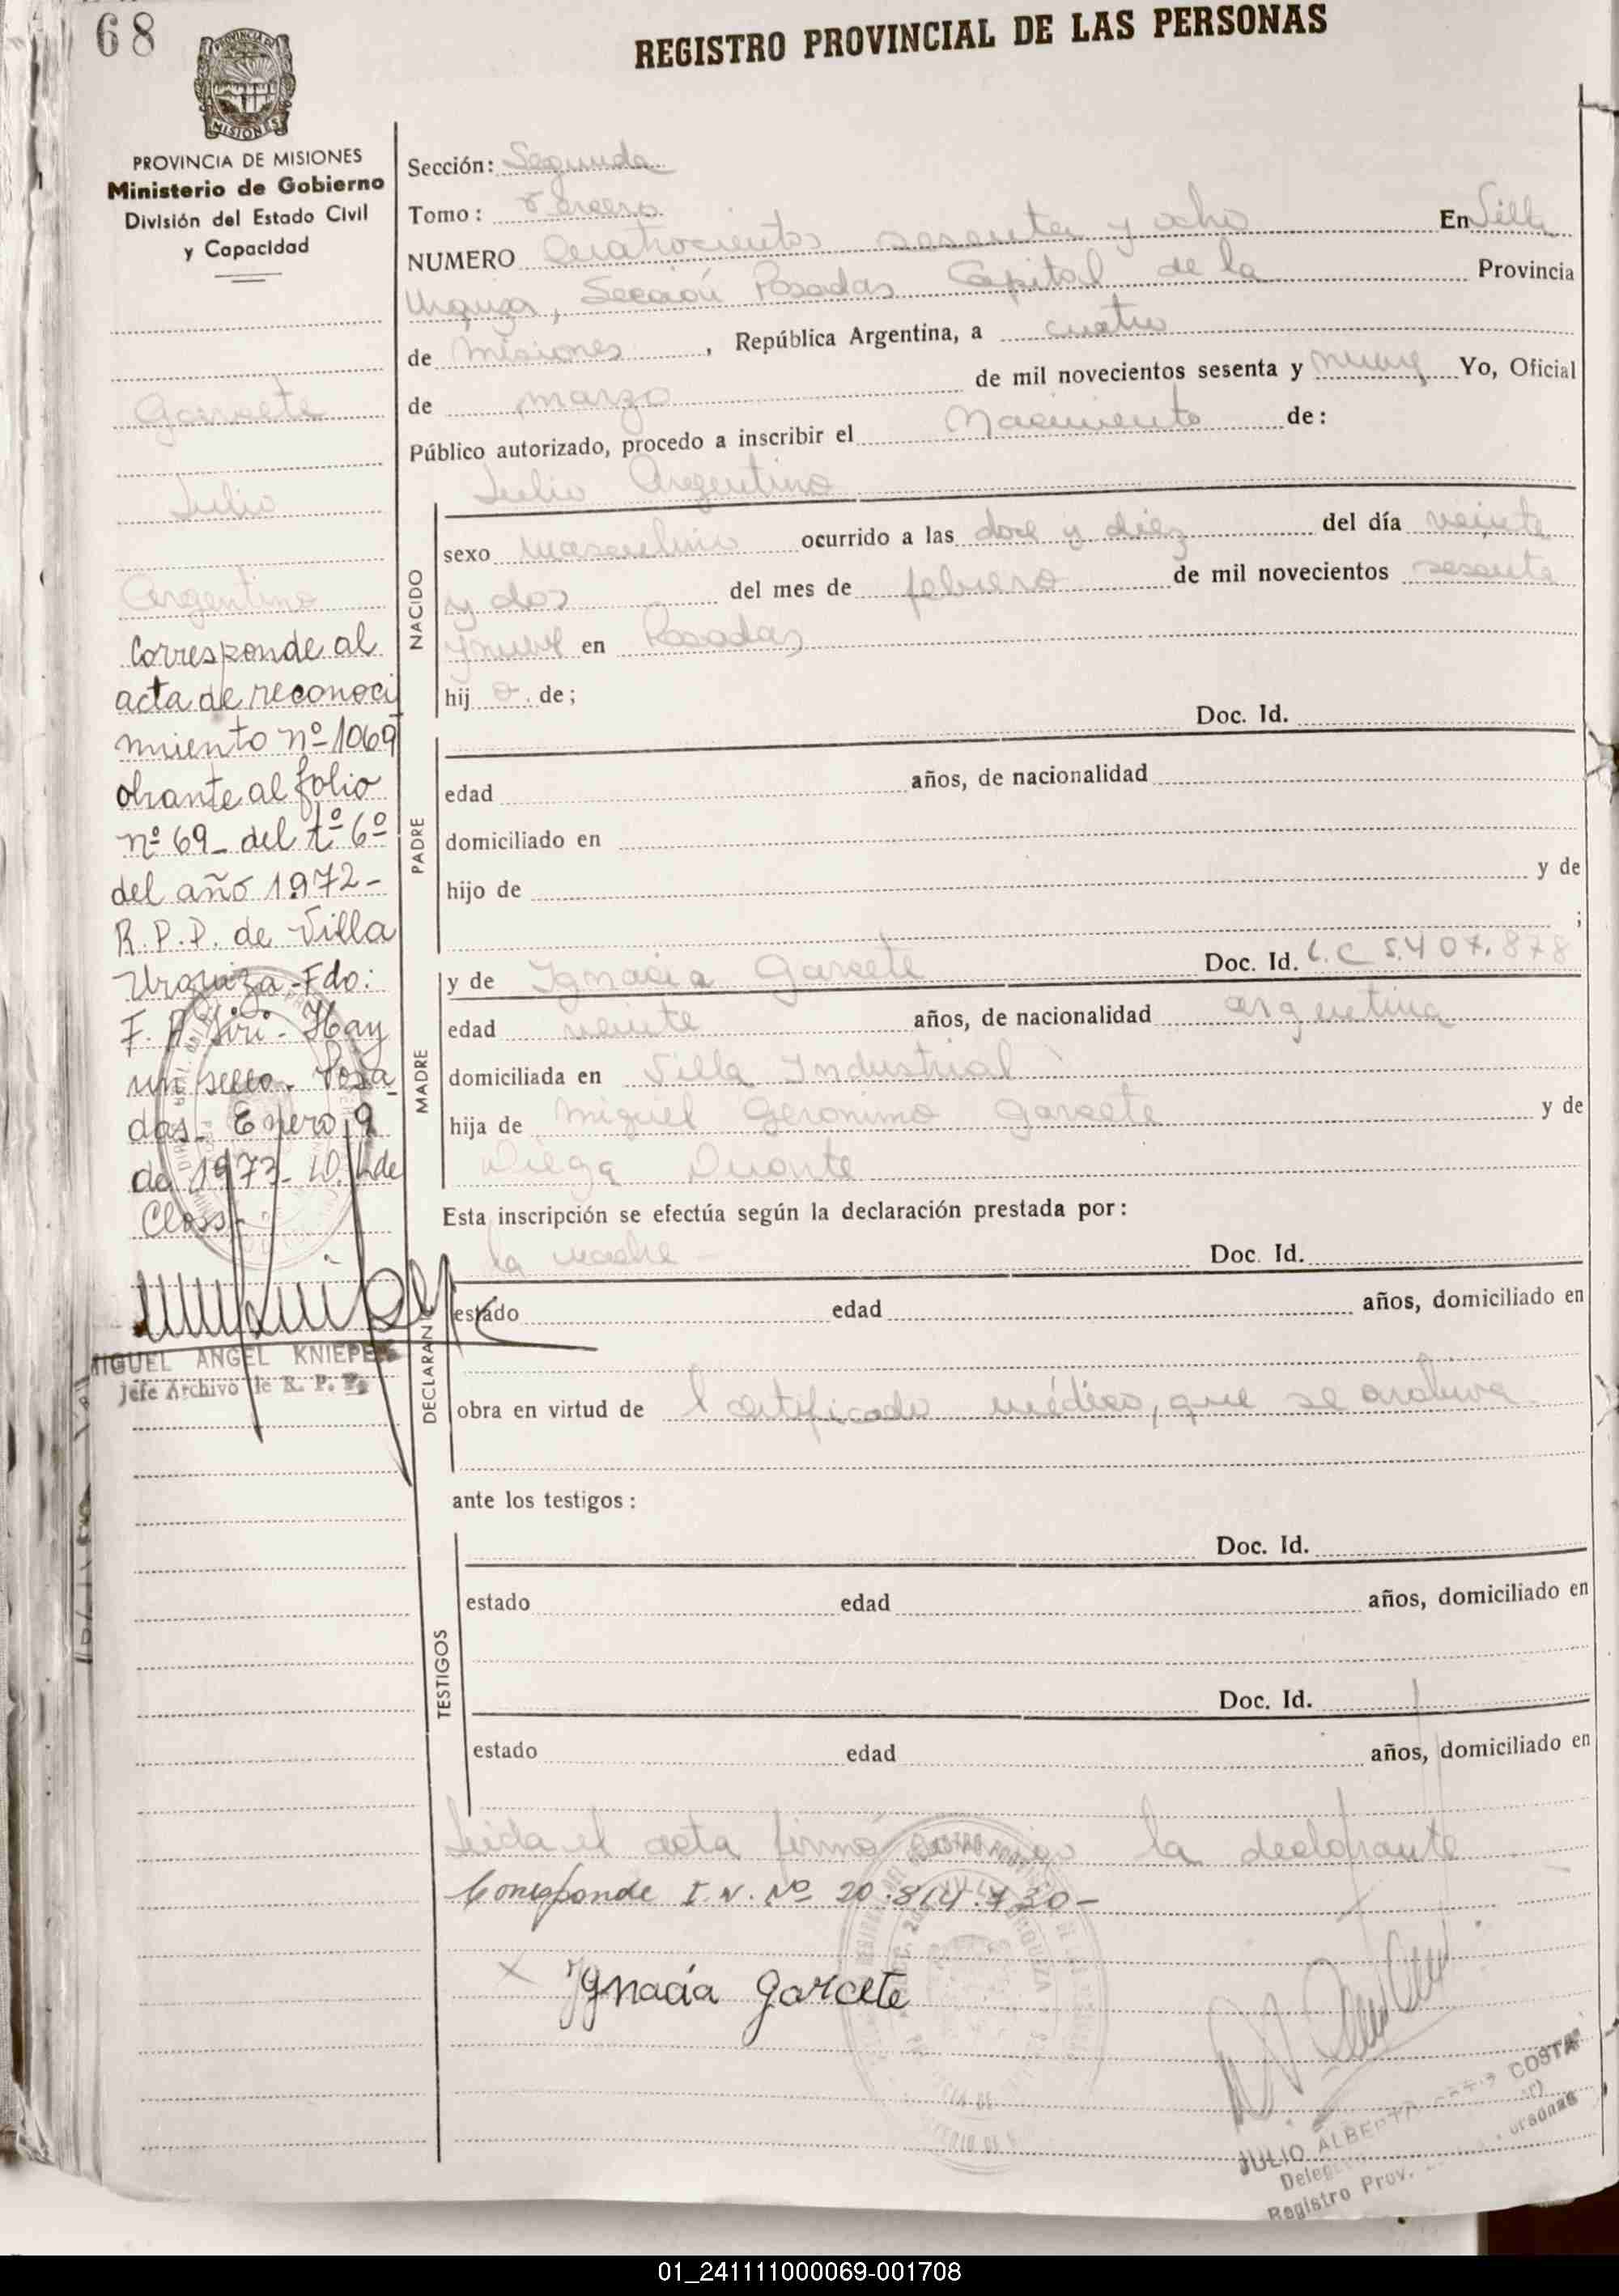 68
REGISTRO PROVINCIAL DE LAS PERSONAS
MISIONES
PROVINCIA DE MISIONES
Ministerio de Gobierno
División del Estado Civil
y Capacidad
Garcete
Julio
Argentino
Corresponde al
acta de reconoci
miento nº 1069
obrante al folio
nº 69 - del tº 6º
del año 1972 -
R. P. P. de Villa
Urquiza - Fdo:
F. A. Siri - Hay
un sello - Posa
das - Enero 9
de 1973 -
Closs -
MIGUEL ANGEL KNIEPE
Jefe Archivo de R. P. P.
Sección: Segunda
Tomo: Tercero
NUMERO Cuatrocientos sesenta y ocho En Villa
Urquiza, Sección Posadas Capital de la Provincia
de Misiones, República Argentina, a cuatro
de marzo de mil novecientos sesenta y nueve Yo, Oficial
Público autorizado, procedo a inscribir el Nacimiento de:
Julio Argentino
NACIDO
sexo masculino ocurrido a las doce y diez del día veinte
y dos del mes de febrero de mil novecientos sesenta
y nueve en Posadas
hij o de;
Doc. Id.
PADRE
edad años, de nacionalidad
domiciliado en
hijo de y de
;
MADRE
y de Ignacia Garcete Doc. Id. L. C 5.407.878
edad veinte años, de nacionalidad argentina
domiciliada en Villa Industrial
hija de Miguel Geronimo Garcete y de
Diega Duarte
Esta inscripción se efectúa según la declaración prestada por:
la madre Doc. Id.
DECLARANTE
estado edad años, domiciliado en
obra en virtud de certificado médico, que se archiva
ante los testigos:
TESTIGOS
Doc. Id.
estado edad años, domiciliado en
Doc. Id.
estado edad años, domiciliado en
Leida el acta firmó conmigo la declarante
Corresponde I. N. Nº 20.814.730 -
X Ignacia Garcete
JULIO ALBERTO COSTA
Registro Prov. Personas
01_241111000069-001708